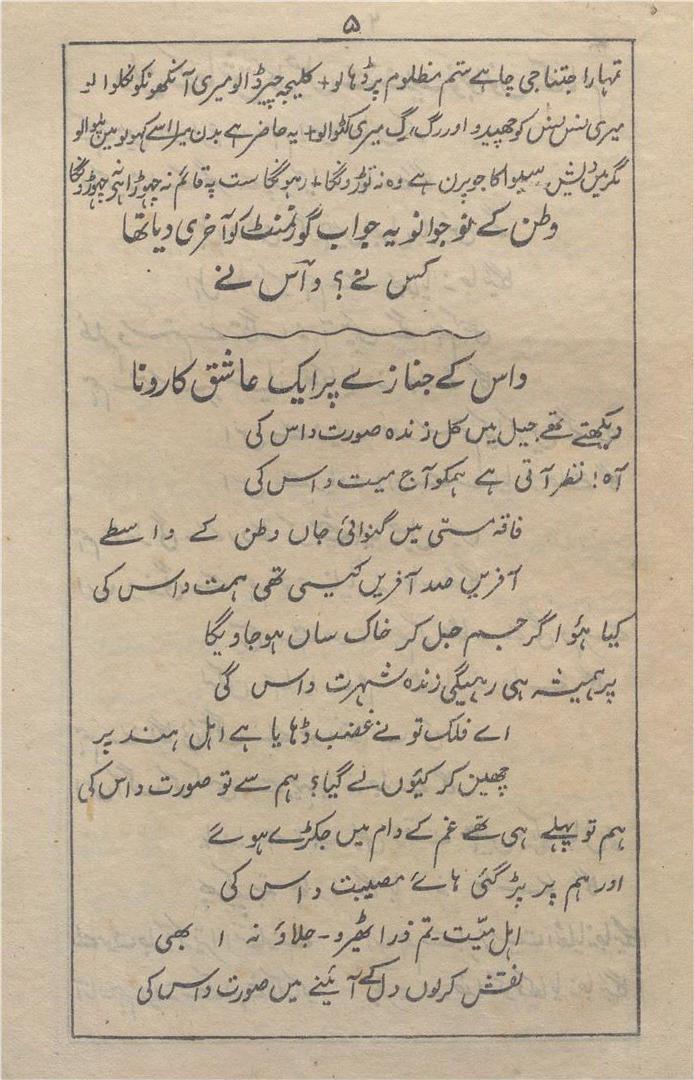 ۵
تمہارا جتنا جی چاہے ستم مظلوم پر ڈہالو + کلیجہ چیر ڈالو میری آنکھونکو نکلوا لو
میری نس نس کو چھیدو اور رگ رگ میری کٹوالو + یہ حاضر ہے بدن میرا اسے کہولو مین پلوالو
مگر میں دیش سیوا کا جو پرن ہے وہ نہ توڑونگا + رہونگا ست پہ قائم نہ چہوڑا ہے نہ چہوڑونگا
وطن کے نوجوانو یہ جواب گورنمنٹ کو آخری دیا تھا
کس نے؟ داس نے
داس کے جنازے پر ایک عاشق کا رونا
دیکھتے تھے جیل میں کل زندہ صورت داس کی
آہ! نظر آتی ہے ہمکو آج میت داس کی
فاقہ مستی میں گنوائی جاں وطن کے واسطے
آفریں صد آفریں کیسی تھی ہمت داس کی
کیا ہؤا گر جسم جل کر خاک ساں ہو جاویگا
پر ہمیشہ ہی رہیگی زندہ شہرت داس کی
اے فلک تو نے غضب ڈہایا ہے اہل ہند پر
چھین کر کیوں لے گیا؟ ہم سے تو صورت داس کی
ہم تو پہلے ہی تھے غم کے دام میں جکڑے ہوئے
اور ہم پر پڑ گئی ہائے مصیبت داس کی
اہل میّت۔ تم ذرا ٹھیرو۔ جلاؤ نہ ابھی
نقش کرلوں دل کے آئینے میں صورت داس کی